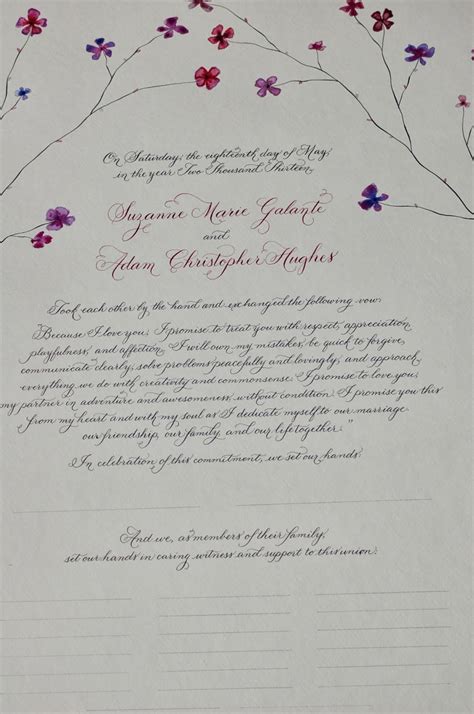 On Saturday, the eighteenth day of May,
in the year Two Thousand Thirteen,
Suzanne Marie Galante
and
Adam Christopher Hughes
Took each other by the hand and exchanged the following vow:
Because I love you, I promise to treat you with respect, appreciation,
playfulness, and affection. I will own my mistakes, be quick to forgive,
communicate clearly, solve problems peacefully and lovingly, and approach
everything we do with creativity and commonsense. I promise to love you,
my partner in adventure and awesomeness, without condition. I promise you this
from my heart and with my soul as I dedicate myself to our marriage
our friendship, our family, and our life together."
In celebration of this commitment, we set our hands:
And we, as members of their family,
set our hands in caring witness and support to this union: